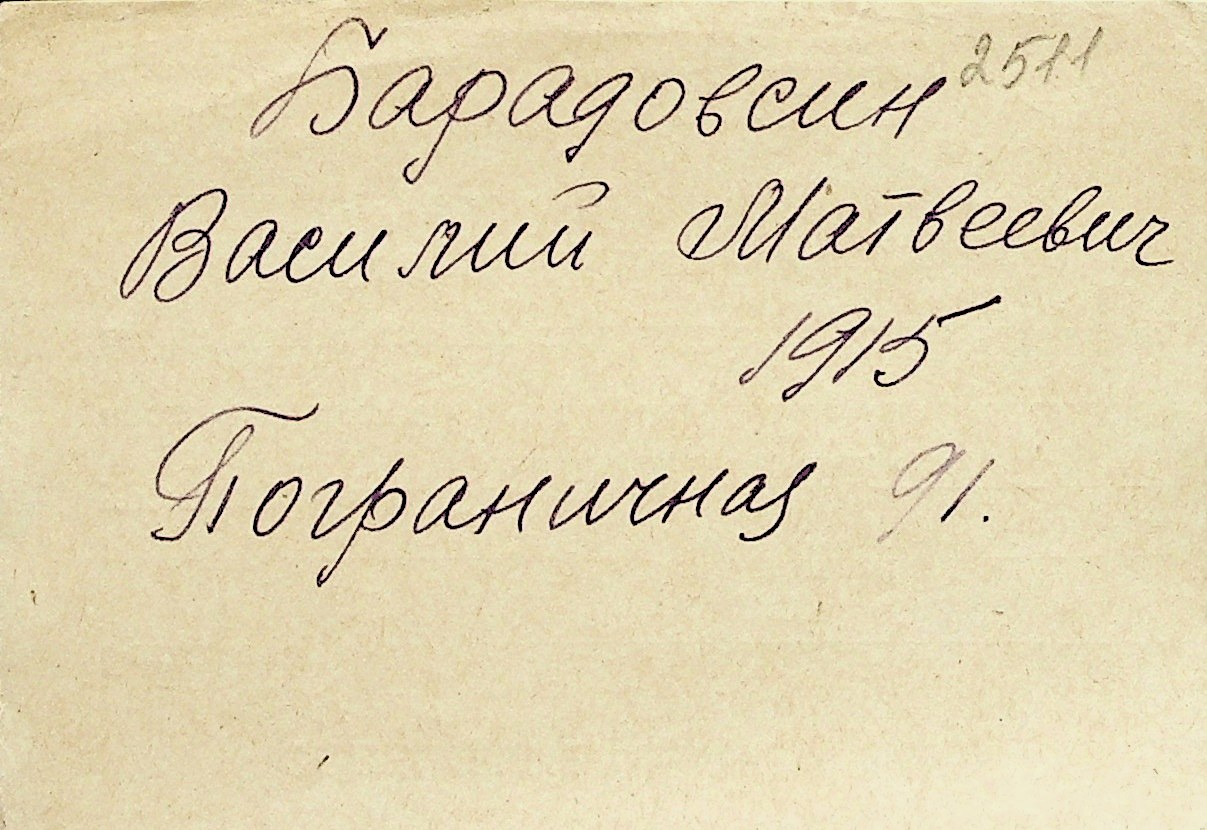 Барадовсин 2511
Василий Матвеевич
1915
Пограничная 91.